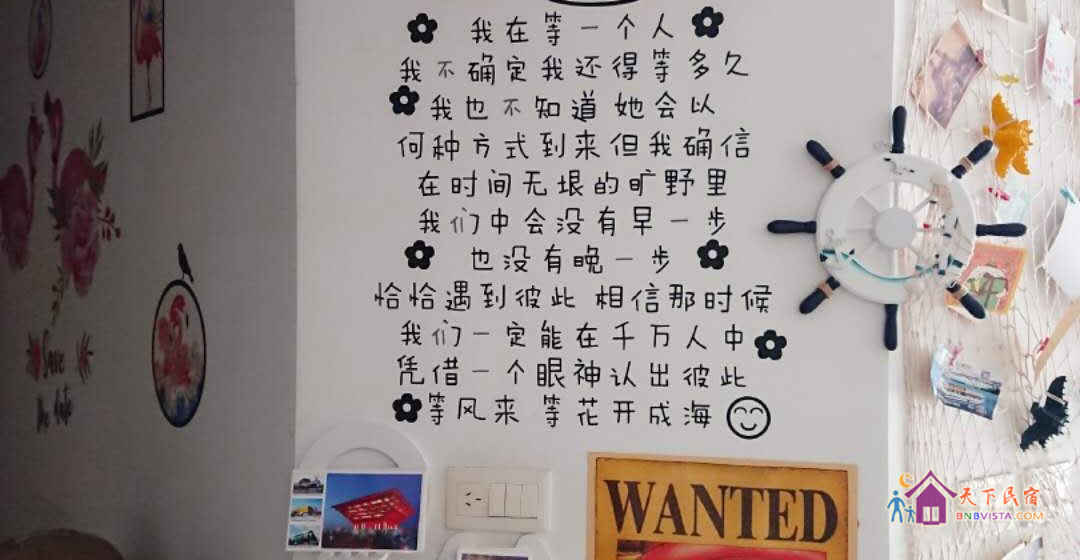 我在等一个人
我不确定我还得等多久
我也不知道她会以
何种方式到来但我确信
在时间无垠的旷野里
我们中会没有早一步
也没有晚一步
恰恰遇到彼此 相信那时候
我们一定能在千万人中
凭借一个眼神认出彼此
等风来 等花开成海
Save
the date
WANTED
天下民宿
BNBVISTA.COM